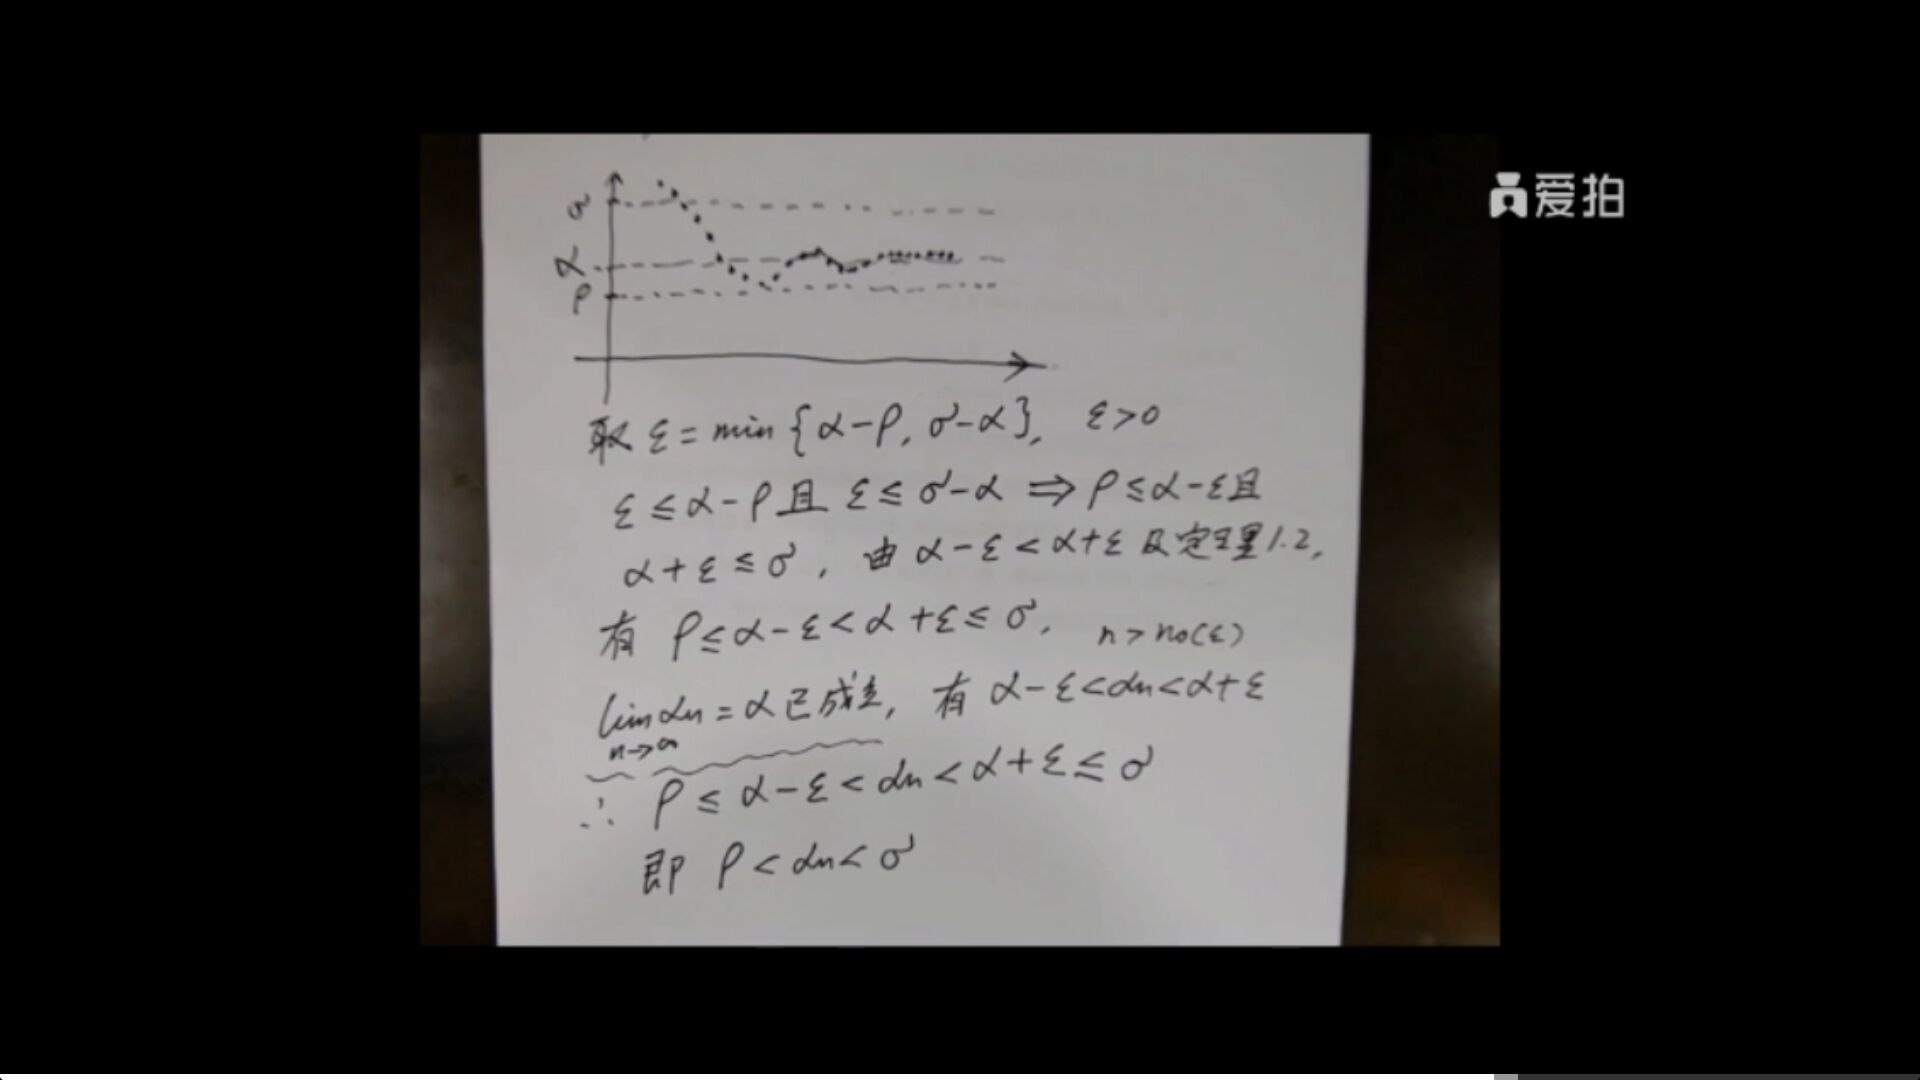 爱拍
σ
α
ρ
取 ε = min {α-ρ, σ-α}, ε>0
ε ≤ α-ρ 且 ε ≤ σ-α ⇒ ρ ≤ α-ε 且
α+ε ≤ σ, 由 α-ε < α+ε 及定理1.2,
有 ρ ≤ α-ε < α+ε ≤ σ, n > n₀(ε)
lim αn = α 已成立, 有 α-ε < αn < α+ε
n→∞
∴ ρ ≤ α-ε < αn < α+ε ≤ σ
即 ρ < αn < σ